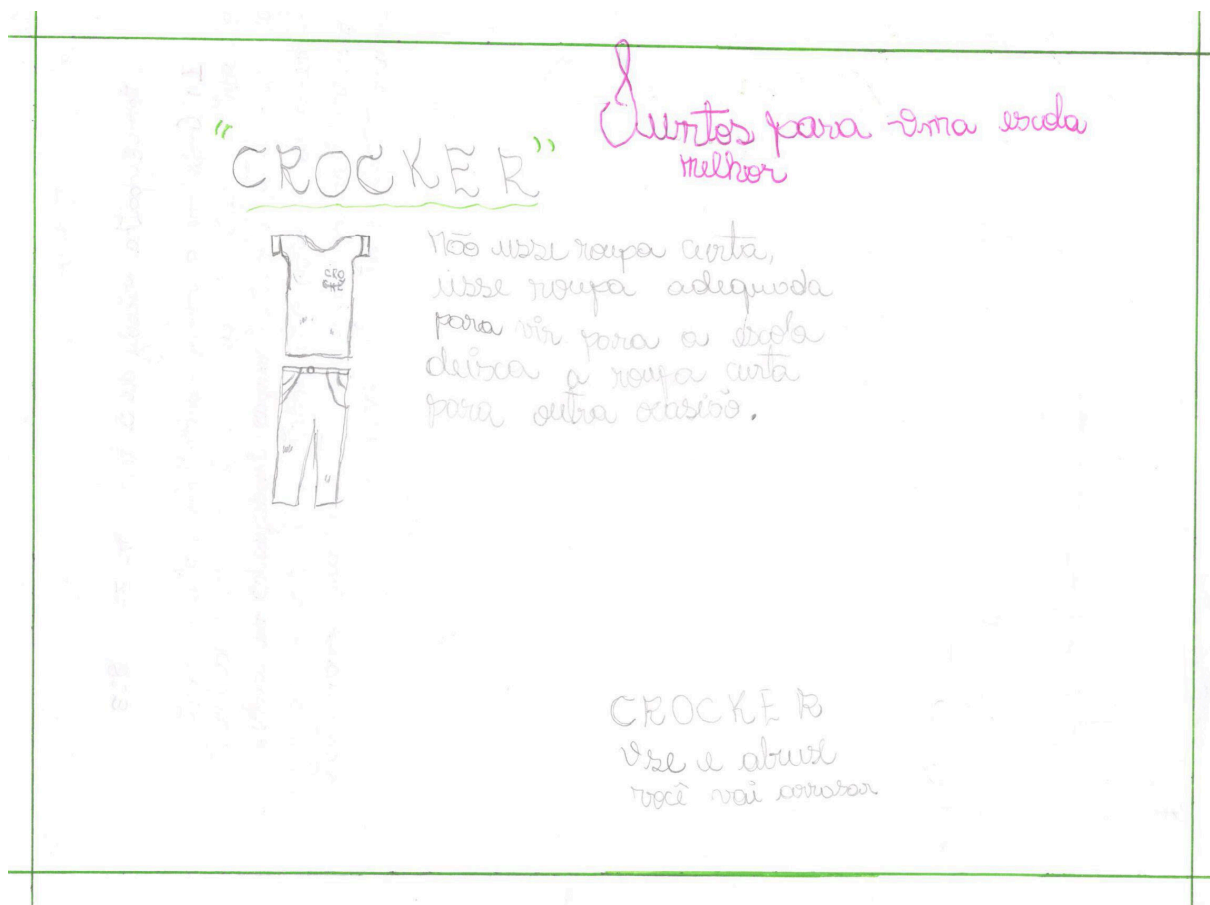 "CROCKER"
Juntos para uma escola
melhor
CRO
Não usse roupa curta,
usse roupa adequada
para vir para a escola
deixa a roupa curta
para outra ocasião.
CROCKER
Use e abuse
você vai arrasar